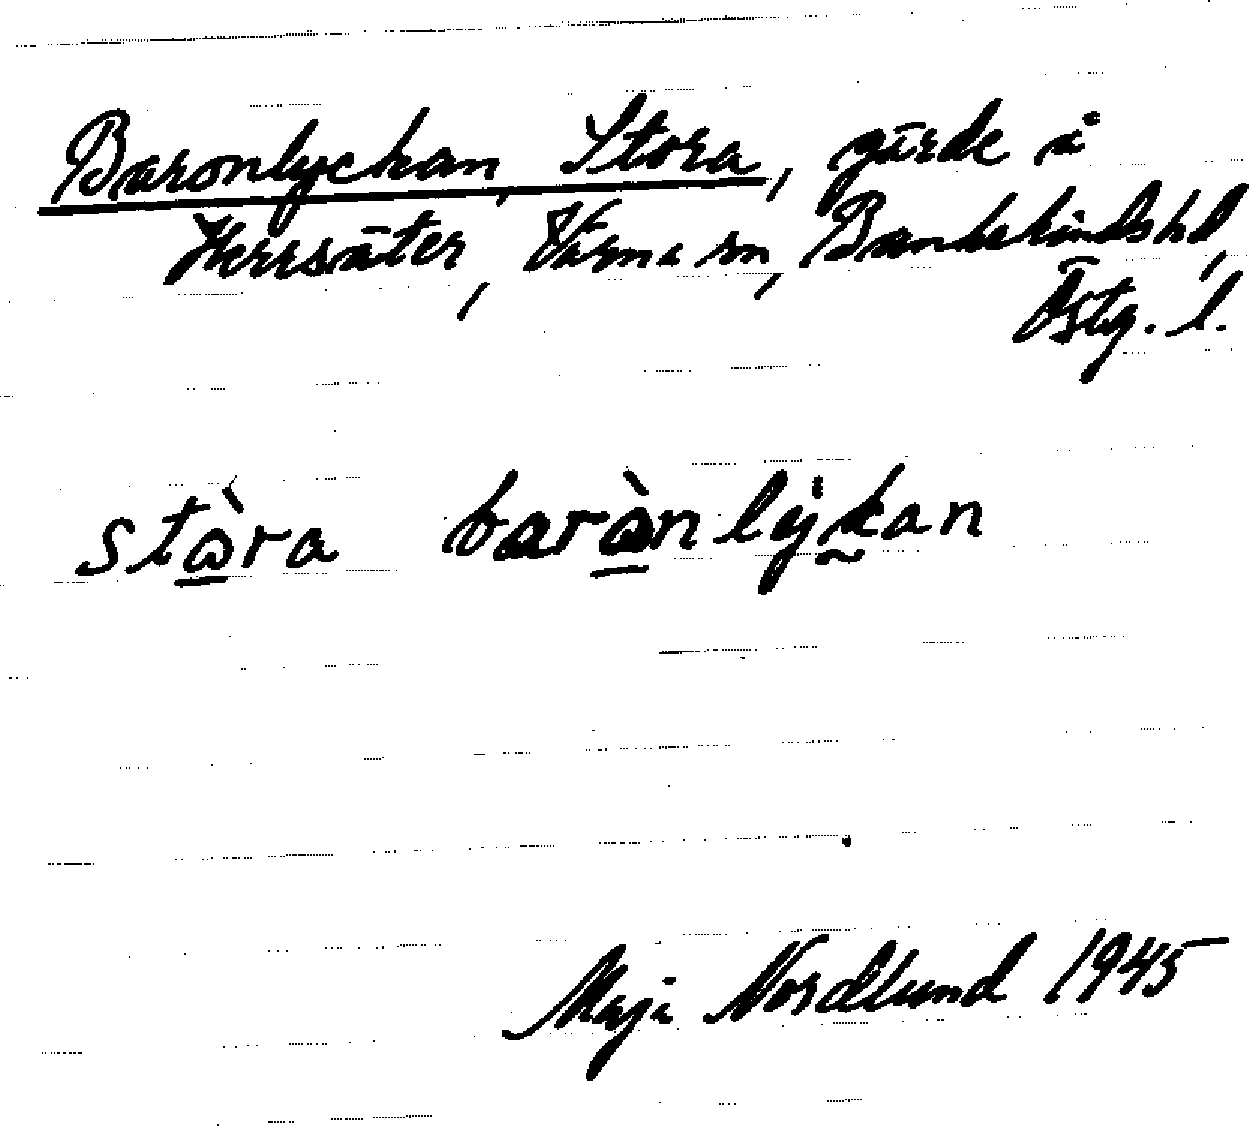 Baronlyckan, Stora, gärde å
Herrsäter, Värna sn, Bankekinds hd,
Östg. l.
stòra barònlykan
Maja Nordlund 1945